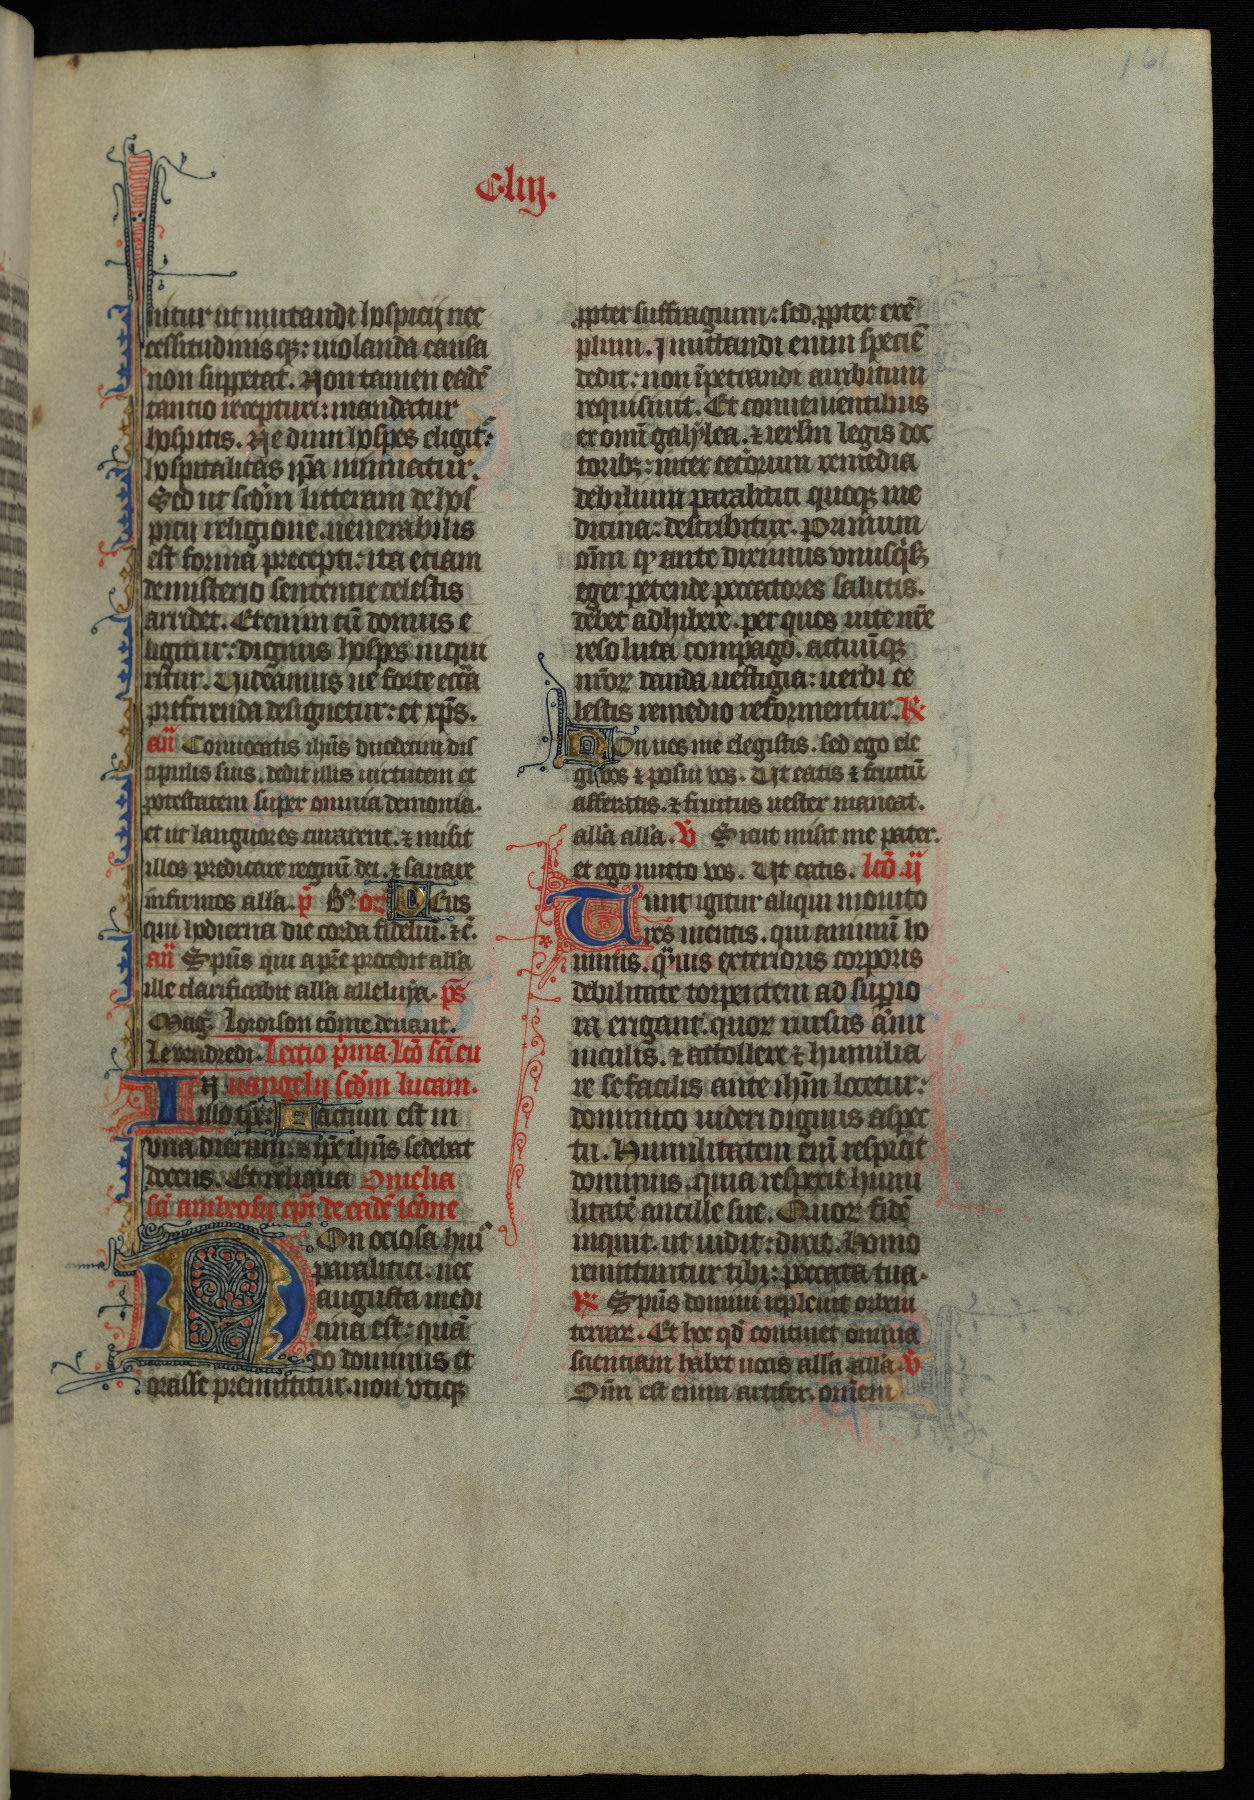 161
C.liij.
nitur ut mutandi hospicij nec
cessitudinisq; uiolanda causa
non suppetat. Non tamen eadē
tantio recepturi: mandatur
hospitis. Ne dum hospes eligit̉:
hospitalitas ip̄a minuatur.
Sed ut scd̄m litteram de hos
picij religione uenerabilis
est forma precepti: ita etiam
de misterio sententie celestis
arridet. Etenim cū domus e
ligitur: dignus hospes inqui
ritur. Uideamus ne forte ecc̄a
preferenda designetur: et xp̄s.
añ Conuocatis ihūs duodecim dis
cipulis suis. dedit illis uirtutem et
potestatem super omnia demonia.
et ut languores curarent. ⁊ misit
illos predicare regnū dei. ⁊ sanare
infirmos all'a. Deus
qui hodierna die corda fideliū. ⁊c̄.
añ Spūs qui a pr̄e procedit all'a
ille clarificabit all'a alleluya. ps̄
Mag̃. Loroison cōme deuant.
Le vendredi. Lectio p̄ma. Lcō sc̄i eu
In uangelij scd̄m lucam.
illo tp̄r: Factum est in
una dierum: ⁊ ip̄e ihūs sedebat
docens. Et reliqua Omelia
sc̄i ambrosij ep̄i de eadē lc̄one
Non ociosa hui'
paralitici. nec
angusta medi
cina est: quā
do dominus et
orasse premittitur. non utiq;
ꝓpter suffragium: sed ꝓpter exē
plum. Imitandi enim speciē
dedit: non īpetrandi ambitum
requisiuit. Et conuenientibus
ex omī galylea. ⁊ ierl'm legis doc
torib;: inter ceterorum remedia
debilium paralitici quoq; me
dicina: describitur. Primum
om̄i ꝙ ante diximus vnusq'sq;
eger petende precatores salutis.
debet adhibere. per quos uite nr̄e
resoluta compago. actuūq;
nr̄oꝝ clauda uestigia: uerbi ce
lestis remedio reformentur. ℟
Non uos me elegistis. sed ego ele
gi uos ⁊ posui vos. Ut eatis ⁊ fructū
afferatis. ⁊ fructus uester maneat.
all'a all'a. ℣ Sicut misit me pater.
et ego mitto vos. Ut eatis. Lcō. ij
Sunt igitur aliqui monito
res mentis. qui animū ho
minis. q̄uis exterioris corporis
debilitate torpentem ad supio
ra erigant. quoꝝ rursus āmi
niculis. ⁊ attollere ⁊ humilia
re se facilis ante ihm̄ locetur:
dominico uideri dignus aspec
tu. Humilitatem enī respicit
dominus. quia respexit humi
litatē ancille sue. Quoꝝ fidē
inquit. ut uidit: dixit. Homo
remittuntur tibi: peccata tua.
℟ Spūs domini repleuit orbem
terraꝝ. Et hoc qd̄ continet omnia
scientiam habet uocis all'a all'a ℣
Om̄i est enim artifex. omnem